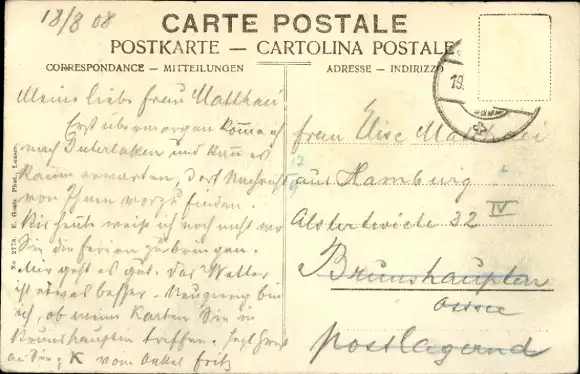 18/8 08
CARTE POSTALE
POSTKARTE – CARTOLINA POSTALE
CORRESPONDANCE – MITTEILUNGEN
ADRESSE – INDIRIZZO
19.
Meine liebe Frau Matthaei
Erst übermorgen komme ich
nach Interlaken und kann es
kaum erwarten, dort Nachricht
von Ihnen vorzufinden.
Bis heute weiß ich noch nicht wo
Sie die Ferien zubringen.
Mir geht es gut. Das Wetter
ist etwas besser. Neugierig bin
ich, ob meine Karten Sie in
Brunshaupten treffen.
an Sie & K vom Onkel Fritz
Frau Elise Matthaei
aus Hamburg
Alsterdwiete 32 IV
Brunshaupten
Ostsee
postlagernd
No 2778. E. Goetz, Phot., Luzern.